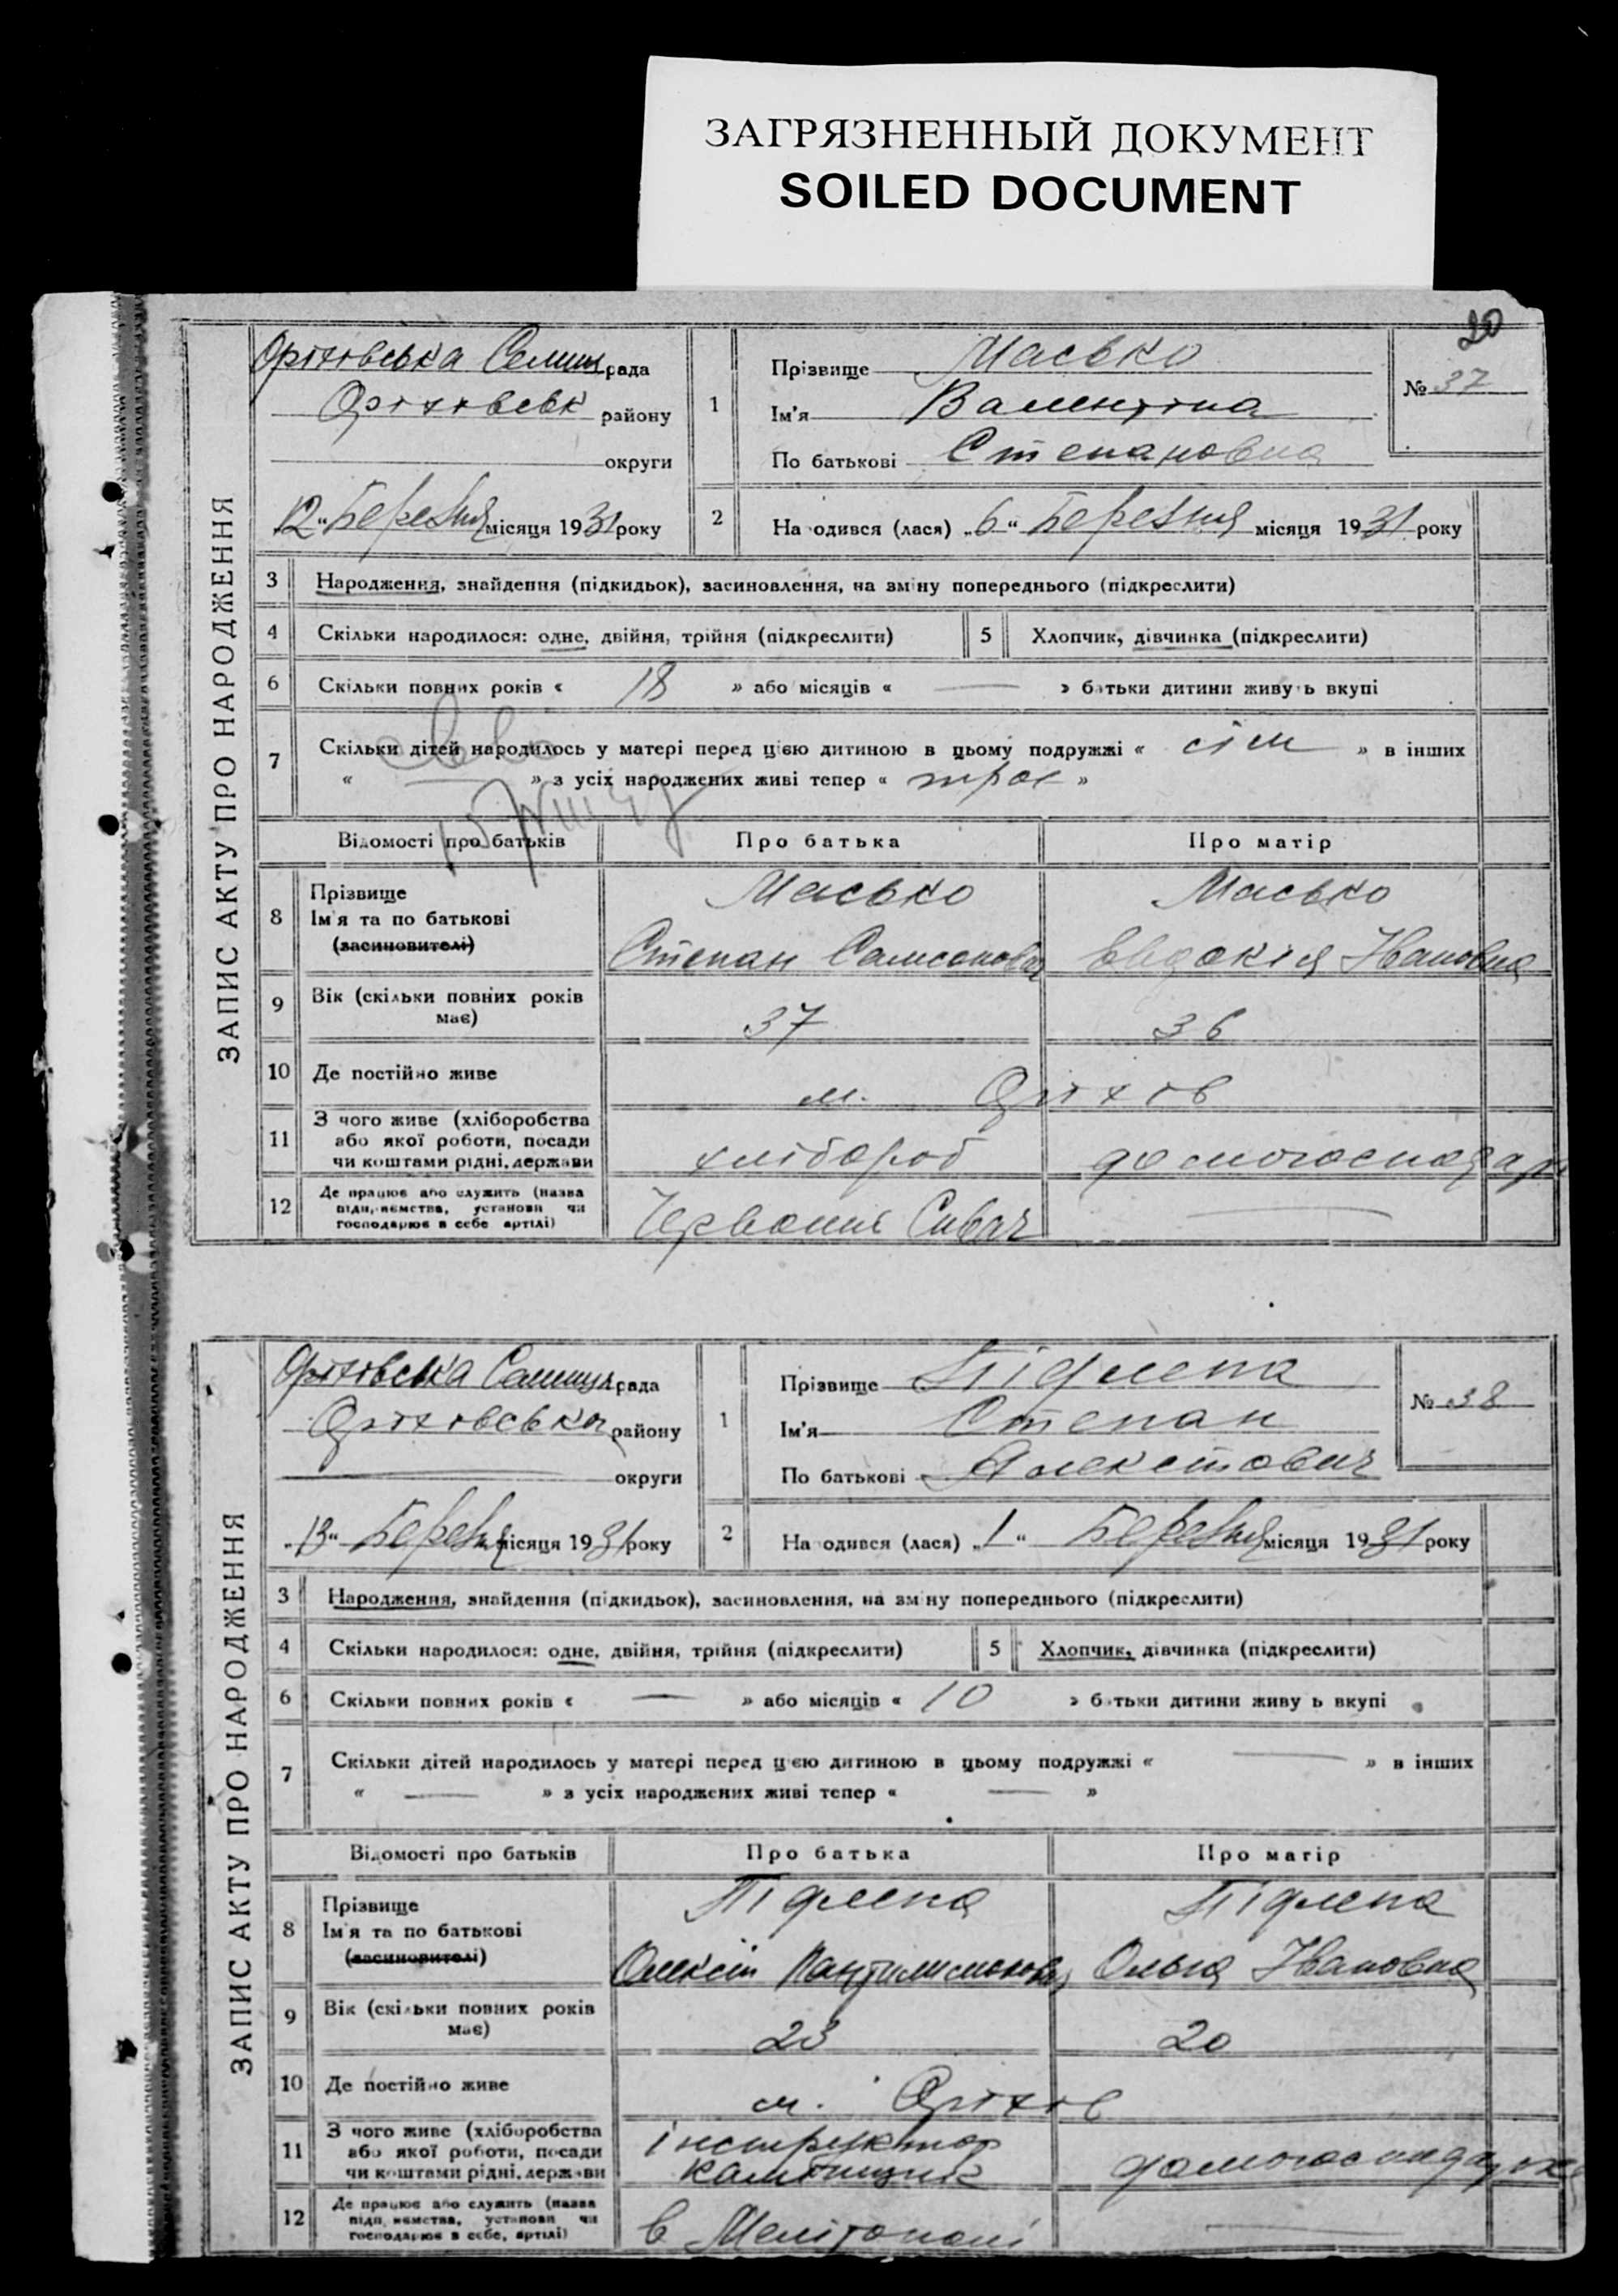 ЗАГРЯЗНЕННЫЙ ДОКУМЕНТ
SOILED DOCUMENT
20
ЗАПИС АКТУ ПРО НАРОДЖЕННЯ
Оріхівська Селищ рада
Оріхівськ району
округи
12 " Березня місяця 1931 року
1
Прізвище Масько
Ім'я Валентіна
По батькові Степановна
№ 37
2
На одився (лася) „ 6 " Березня місяця 1931 року
3 Народження, знайдення (підкидьок), засиновлення, на зміну попереднього (підкреслити)
4 Скільки народилося: одне, двійня, трійня (підкреслити)
5 Хлопчик, дівчинка (підкреслити)
6 Скільки повних років « 18 » або місяців « — » батьки дитини живуть вкупі
7 Скільки дітей народилось у матері перед цією дитиною в цьому подружжі « сім » в інших
« — » з усіх народжених живі тепер « троє »
Відомості про батьків Про батька Про матір
8 Прізвище Масько Масько
Ім'я та по батькові
(засиновителі) Степан Самсонович Евдокія Івановна
9 Вік (скільки повних років
має) 37 36
10 Де постійно живе м. Оріхів
11 З чого живе (хліборобства
або якої роботи, посади
чи коштами рідні, держави хлібороб
12 Де працює або служить (назва
підприємства, установи чи
господарює в себе артілі)
ЗАПИС АКТУ ПРО НАРОДЖЕННЯ
Оріхівська Селищ рада
Оріхівська району
округи
„ 13 " Березня місяця 1931 року
1
Прізвище Підлепа
Ім'я Степан
По батькові
№ 38
2
На одився (лася) „ 1 " Березня місяця 1931 року
3 Народження, знайдення (підкидьок), засиновлення, на зміну попереднього (підкреслити)
4 Скільки народилося: одне, двійня, трійня (підкреслити)
5 Хлопчик, дівчинка (підкреслити)
6 Скільки повних років « — » або місяців « 10 » батьки дитини живу ь вкупі
7 Скільки дітей народилось у матері перед цією дитиною в цьому подружжі « — » в інших
« — » з усіх народжених живі тепер « — »
Відомості про батьків Про батька Про матір
8 Прізвище Підлепа Підлепа
Ім'я та по батькові
(засиновителі) Олексій Ольга Івановна
9 Вік (скільки повних років
має) 23 20
10 Де постійно живе м. Оріхів
11 З чого живе (хліборобства
або якої роботи, посади
чи коштами рідні, держави інструктор
12 Де працює або служить (назва
підприємства, установи чи
господарює в себе, артілі) в Мелітополі